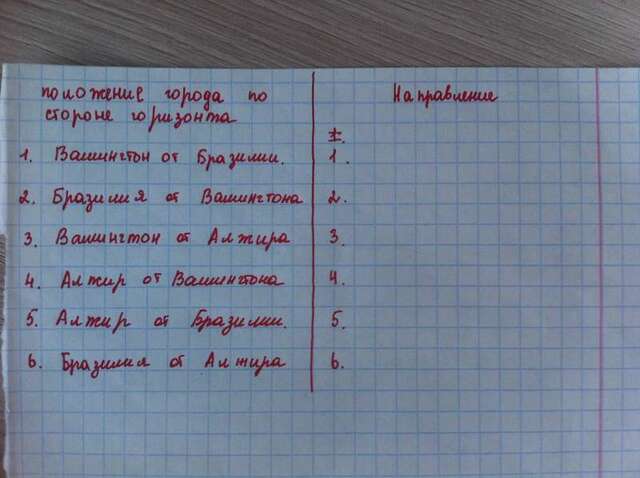 положение города по
стороне горизонта
Направление
1. Вашингтон от Бразилии.
1.
2. Бразилия от Вашингтона
2.
3. Вашингтон от Алжира
3.
4. Алжир от Вашингтона
4.
5. Алжир от Бразилии.
5.
6. Бразилия от Алжира
6.